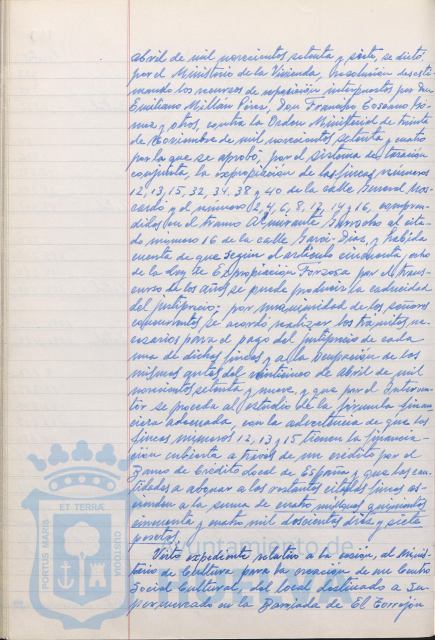 abril de mil novecientos setenta y siete, se dictó
por el Ministerio de la Vivienda, Resolución desesti-
mando los recursos de reposición interpuestos por Don
Emiliano Millán Pérez, Don Francisco
y otros, contra la Orden Ministerial de treinta
de Noviembre de mil novecientos setenta y cuatro
por la que se aprobó, por el sistema de tasación
conjunta, la expropiación de las fincas números
12, 13, 15, 32, 34, 38 y 40 de la calle General Mos-
cardó y el número 2, 4, 6, 8, 12, 14 y 16, compren-
didos en el tramo Almirante Garrocho al cita-
do número 16 de la calle Garci-Díaz, y habida
cuenta de que según el artículo cincuenta y ocho
de la Ley de Expropiación Forzosa por el trans-
curso de los años se puede producir la caducidad
del justiprecio; por unanimidad de los señores
concurrentes se acordó realizar los trámites ne-
cesarios para el pago del justiprecio de cada
una de dichas fincas y a la ocupación de las
mismas antes del veintiuno de Abril de mil
novecientos setenta y nueve, y que por el Interven-
tor se proceda al estudio de la fórmula finan-
ciera adecuada, con la advertencia de que las
fincas números 12, 13 y 15 tienen la financia-
ción cubierta a través de un crédito por el
Banco de Crédito Local de España y que las can-
tidades a abonar a las restantes citadas fincas as-
cienden a la suma de cuatro millones quinientas
cincuenta y cuatro mil doscientas diez y siete
pesetas.
Visto expediente relativo a la cesión, al Minis-
terio de Cultura para la creación de un Centro
Social Cultural, del local destinado a Su-
permercado en la Barriada de El Torrejón
ET TERRÆ
PORTUS MARIS
CUSTODIA
Ayuntamiento de